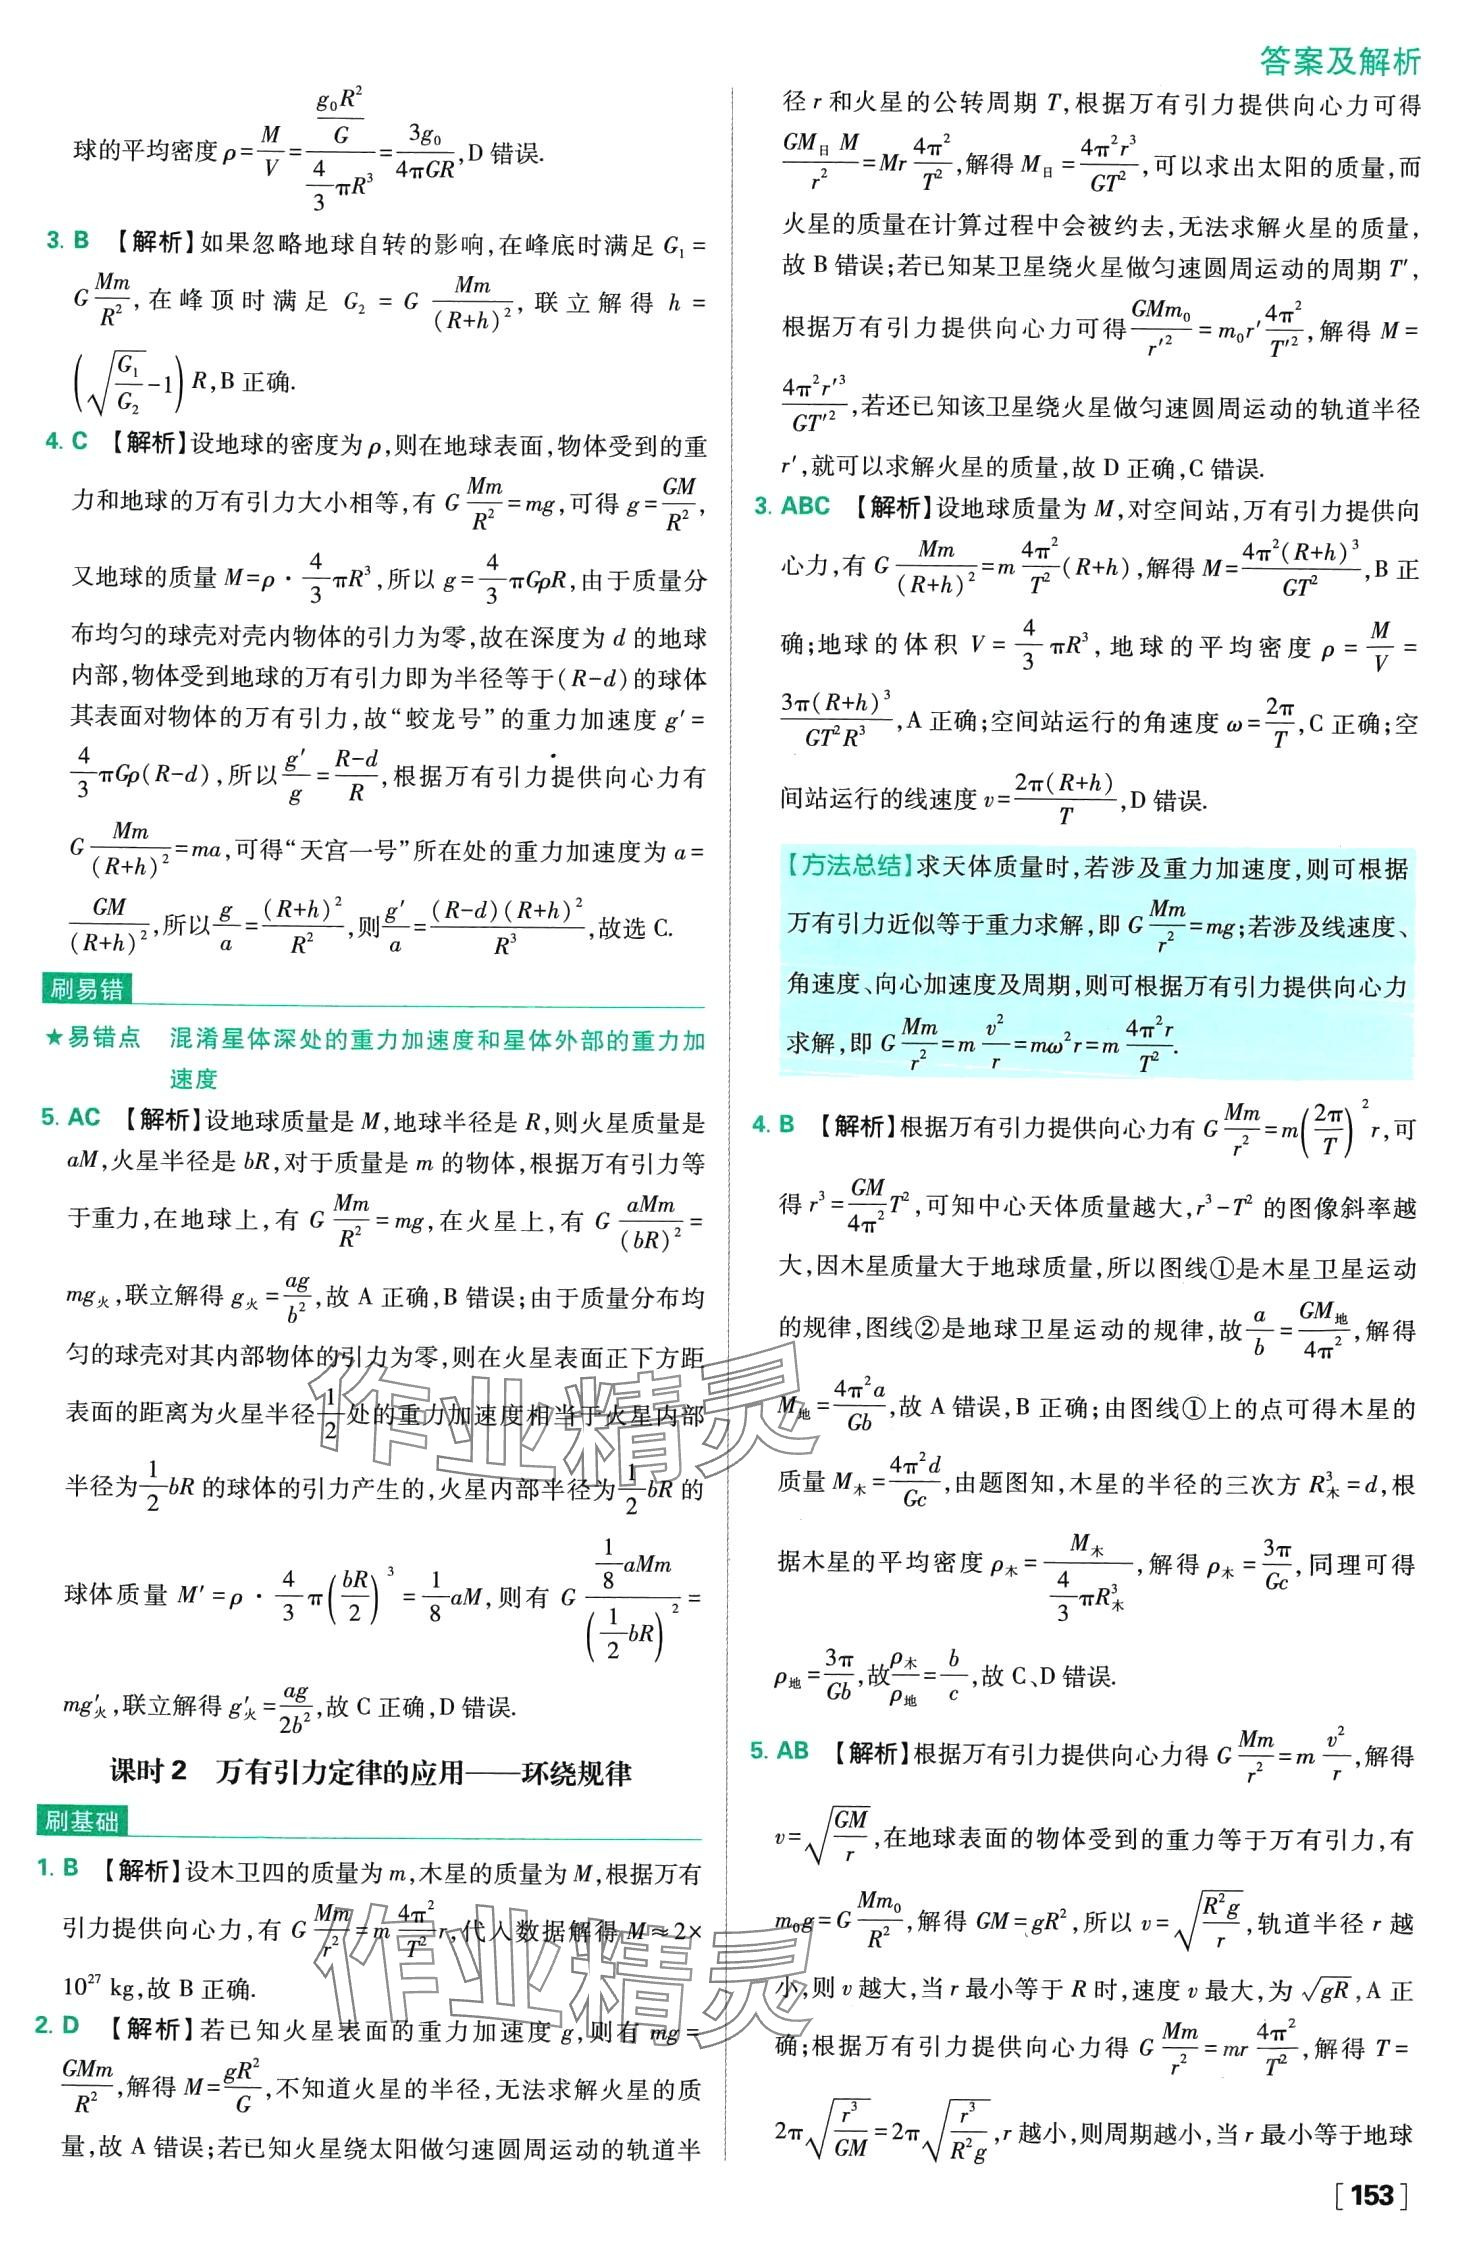 答案及解析
球的平均密度 ρ=M/V=(g₀R²/G)/((4/3)πR³)=3g₀/(4πGR),D 错误.
3. B 【解析】如果忽略地球自转的影响,在峰底时满足 G₁=
G Mm/R²,在峰顶时满足 G₂=G Mm/(R+h)²,联立解得 h=
(√(G₁/G₂)-1)R,B 正确.
4. C 【解析】设地球的密度为 ρ,则在地球表面,物体受到的重
力和地球的万有引力大小相等,有 G Mm/R²=mg,可得 g=GM/R²,
又地球的质量 M=ρ·(4/3)πR³,所以 g=(4/3)πGρR,由于质量分
布均匀的球壳对壳内物体的引力为零,故在深度为 d 的地球
内部,物体受到地球的万有引力即为半径等于(R-d)的球体
其表面对物体的万有引力,故“蛟龙号”的重力加速度 g′=
(4/3)πGρ(R-d),所以 g′/g=(R-d)/R,根据万有引力提供向心力有
G Mm/(R+h)²=ma,可得“天宫一号”所在处的重力加速度为 a=
GM/(R+h)²,所以 g/a=(R+h)²/R²,则 g′/a=(R-d)(R+h)²/R³,故选 C.
刷易错
★易错点 混淆星体深处的重力加速度和星体外部的重力加
速度
5. AC 【解析】设地球质量是 M,地球半径是 R,则火星质量是
aM,火星半径是 bR,对于质量是 m 的物体,根据万有引力等
于重力,在地球上,有 G Mm/R²=mg,在火星上,有 G aMm/(bR)²=
mg火,联立解得 g火=ag/b²,故 A 正确,B 错误;由于质量分布均
匀的球壳对其内部物体的引力为零,则在火星表面正下方距
表面的距离为火星半径1/2处的重力加速度相当于火星内部
半径为(1/2)bR 的球体的引力产生的,火星内部半径为(1/2)bR 的
球体质量 M′=ρ·(4/3)π(bR/2)³=(1/8)aM,则有 G((1/8)aMm)/((1/2)bR)²=
mg′火,联立解得 g′火=ag/(2b²),故 C 正确,D 错误.
课时2 万有引力定律的应用——环绕规律
刷基础
1. B 【解析】设木卫四的质量为 m,木星的质量为 M,根据万有
引力提供向心力,有 G Mm/r²=m(4π²/T²)r,代入数据解得 M≈2×
10²⁷ kg,故 B 正确.
2. D 【解析】若已知火星表面的重力加速度 g,则有 mg=
GMm/R²,解得 M=gR²/G,不知道火星的半径,无法求解火星的质
量,故 A 错误;若已知火星绕太阳做匀速圆周运动的轨道半
径 r 和火星的公转周期 T,根据万有引力提供向心力可得
GM日M/r²=Mr 4π²/T²,解得 M日=4π²r³/(GT²),可以求出太阳的质量,而
火星的质量在计算过程中会被约去,无法求解火星的质量,
故 B 错误;若已知某卫星绕火星做匀速圆周运动的周期 T′,
根据万有引力提供向心力可得 GMm₀/r′²=m₀r′ 4π²/T′²,解得 M=
4π²r′³/(GT′²),若还已知该卫星绕火星做匀速圆周运动的轨道半径
r′,就可以求解火星的质量,故 D 正确,C 错误.
3. ABC 【解析】设地球质量为 M,对空间站,万有引力提供向
心力,有 G Mm/(R+h)²=m(4π²/T²)(R+h),解得 M=4π²(R+h)³/(GT²),B 正
确;地球的体积 V=(4/3)πR³,地球的平均密度 ρ=M/V=
3π(R+h)³/(GT²R³),A 正确;空间站运行的角速度 ω=2π/T,C 正确;空
间站运行的线速度 v=2π(R+h)/T,D 错误.
【方法总结】求天体质量时,若涉及重力加速度,则可根据
万有引力近似等于重力求解,即 G Mm/r²=mg;若涉及线速度、
角速度、向心加速度及周期,则可根据万有引力提供向心力
求解,即 G Mm/r²=m v²/r=mω²r=m 4π²r/T².
4. B 【解析】根据万有引力提供向心力有 G Mm/r²=m(2π/T)²r,可
得 r³=(GM/4π²)T²,可知中心天体质量越大,r³-T² 的图像斜率越
大,因木星质量大于地球质量,所以图线①是木星卫星运动
的规律,图线②是地球卫星运动的规律,故 a/b=GM地/4π²,解得
M地=4π²a/(Gb),故 A 错误,B 正确;由图线①上的点可得木星的
质量 M木=4π²d/(Gc),由题图知,木星的半径的三次方 R³木=d,根
据木星的平均密度 ρ木=M木/((4/3)πR³木),解得 ρ木=3π/(Gc),同理可得
ρ地=3π/(Gb),故 ρ木/ρ地=b/c,故 C、D 错误.
5. AB 【解析】根据万有引力提供向心力得 G Mm/r²=m v²/r,解得
v=√(GM/r),在地球表面的物体受到的重力等于万有引力,有
m₀g=G Mm₀/R²,解得 GM=gR²,所以 v=√(R²g/r),轨道半径 r 越
小,则 v 越大,当 r 最小等于 R 时,速度 v 最大,为 √(gR),A 正
确;根据万有引力提供向心力得 G Mm/r²=mr 4π²/T²,解得 T=
2π√(r³/GM)=2π√(r³/(R²g)),r 越小,则周期越小,当 r 最小等于地球
[153]
作业精灵
作业精灵